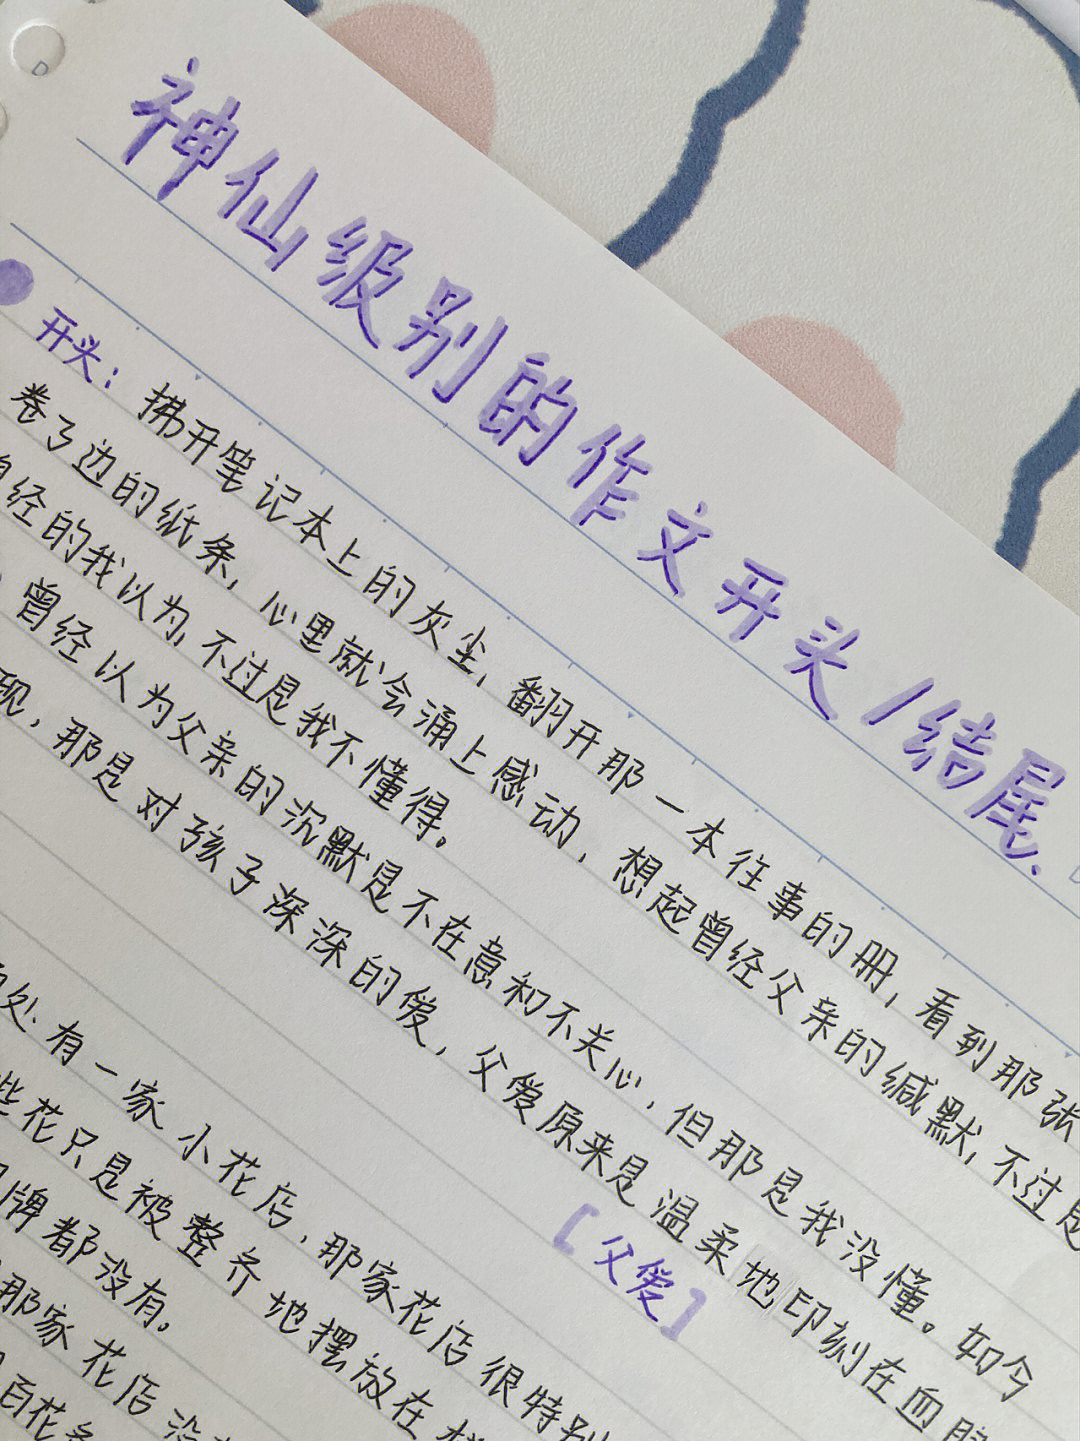 神仙级别的作文开头/结尾.
开头: 拂开笔记本上的灰尘, 翻开那一本往事的册, 看到那张
卷了边的纸条, 心里就会涌上感动, 想起曾经父亲的缄默, 不过是
经的我以为, 不过是我不懂得。
曾经以为父亲的沉默是不在意和不关心, 但那是我没懂。如今
现, 那是对孩子深深的爱, 父爱原来是温柔地印刻在血
[父爱]
处有一家小花店, 那家花店很特别
些花只是被整齐地摆放在
牌都没有.
那家花店没
百花